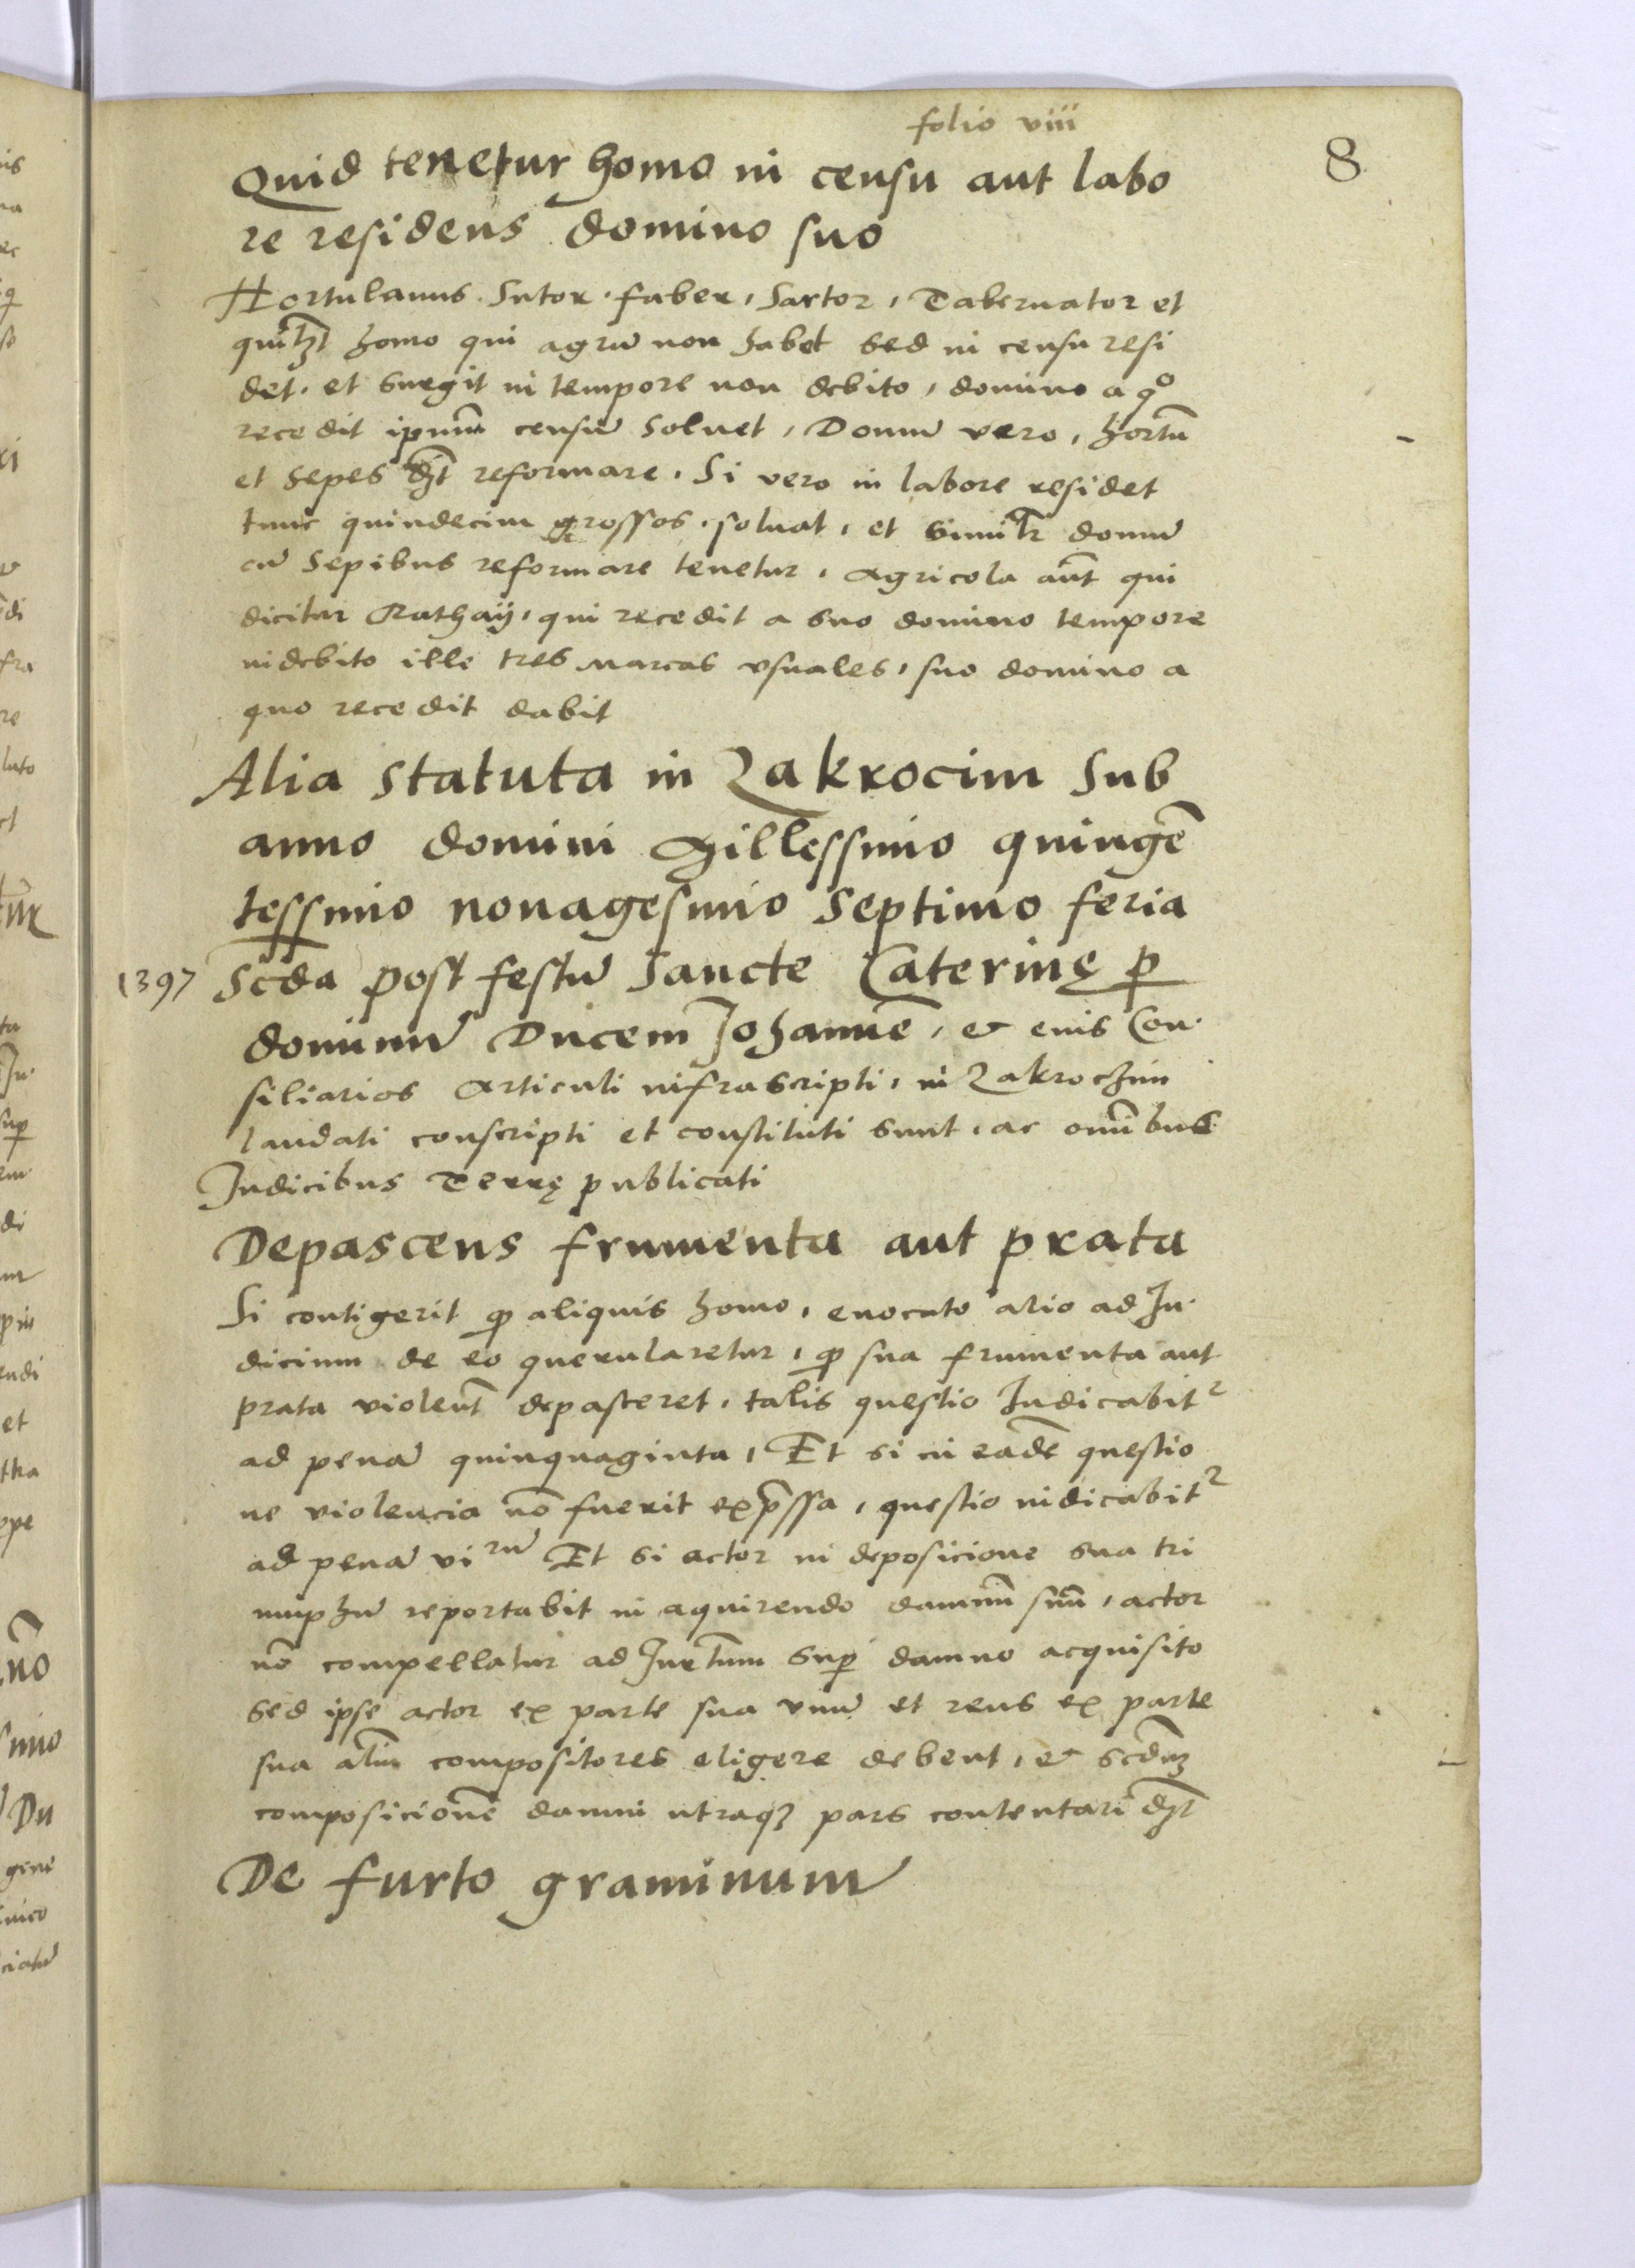 folio viii
8
Quid tenetur homo in censu aut labo
re residens domino suo
Hortulanus. Sutor. faber, Sartor, Tabernator et
quilꝫt homo qui agrū non habet sed in censu resi
det. et surgit in tempore non debito, domino a qͦ
recedit ipsum̄ censū soluet, Domū vero, hortū
et sepes dꝫt reformare. Si vero in labore residet
tunc quindecim grossos. soluat, et similr̄ domū
cū sepibus reformare tenetur, Agricola aūt qui
dicitur Rathaÿ, qui recedit a suo domino tempore
indebito ille tres marcas vsuales, suo domino a
quo recedit dabit
Alia statuta in Zakrocim sub
anno domini Millessimo quingē
tessimo nonagesimo septimo feria
1397 Scd̄a post festū Sancte Caterinę ꝑ
dominū Ducem Johannē, & eius Con.
siliarios Articuli infrascripti, in Zakrochim
laudati conscripti et constituti sunt, ac om̄ibus
Judicibus Terrę publicati
Depascens frumenta aut prata
Si contigerit ꝙ aliquis homo, euocato alio ad Ju.
dicium de eo querularetur, ꝙ sua frumenta aut
prata violent̄ depasceret, talis questio Judicabitᷣ
ad penā quinquaginta, Et si in eadē questio
ne violencia nō fuerit exp̄ssa, questio iudicabitᷣ
ad penā vi rū Et si actor in deposicione sua tri
umphū reportabit in aquirendo damnū suū, actor
nō compellatur ad Jurtm̄um suꝑ damno acquisito
sed ipse actor ex parte sua vnū et reus ex parte
sua aliū compositores eligere debent, & scd̄mꝫ
composicionē damni utraqꝫ pars contentari dꝫt
De furto graminum